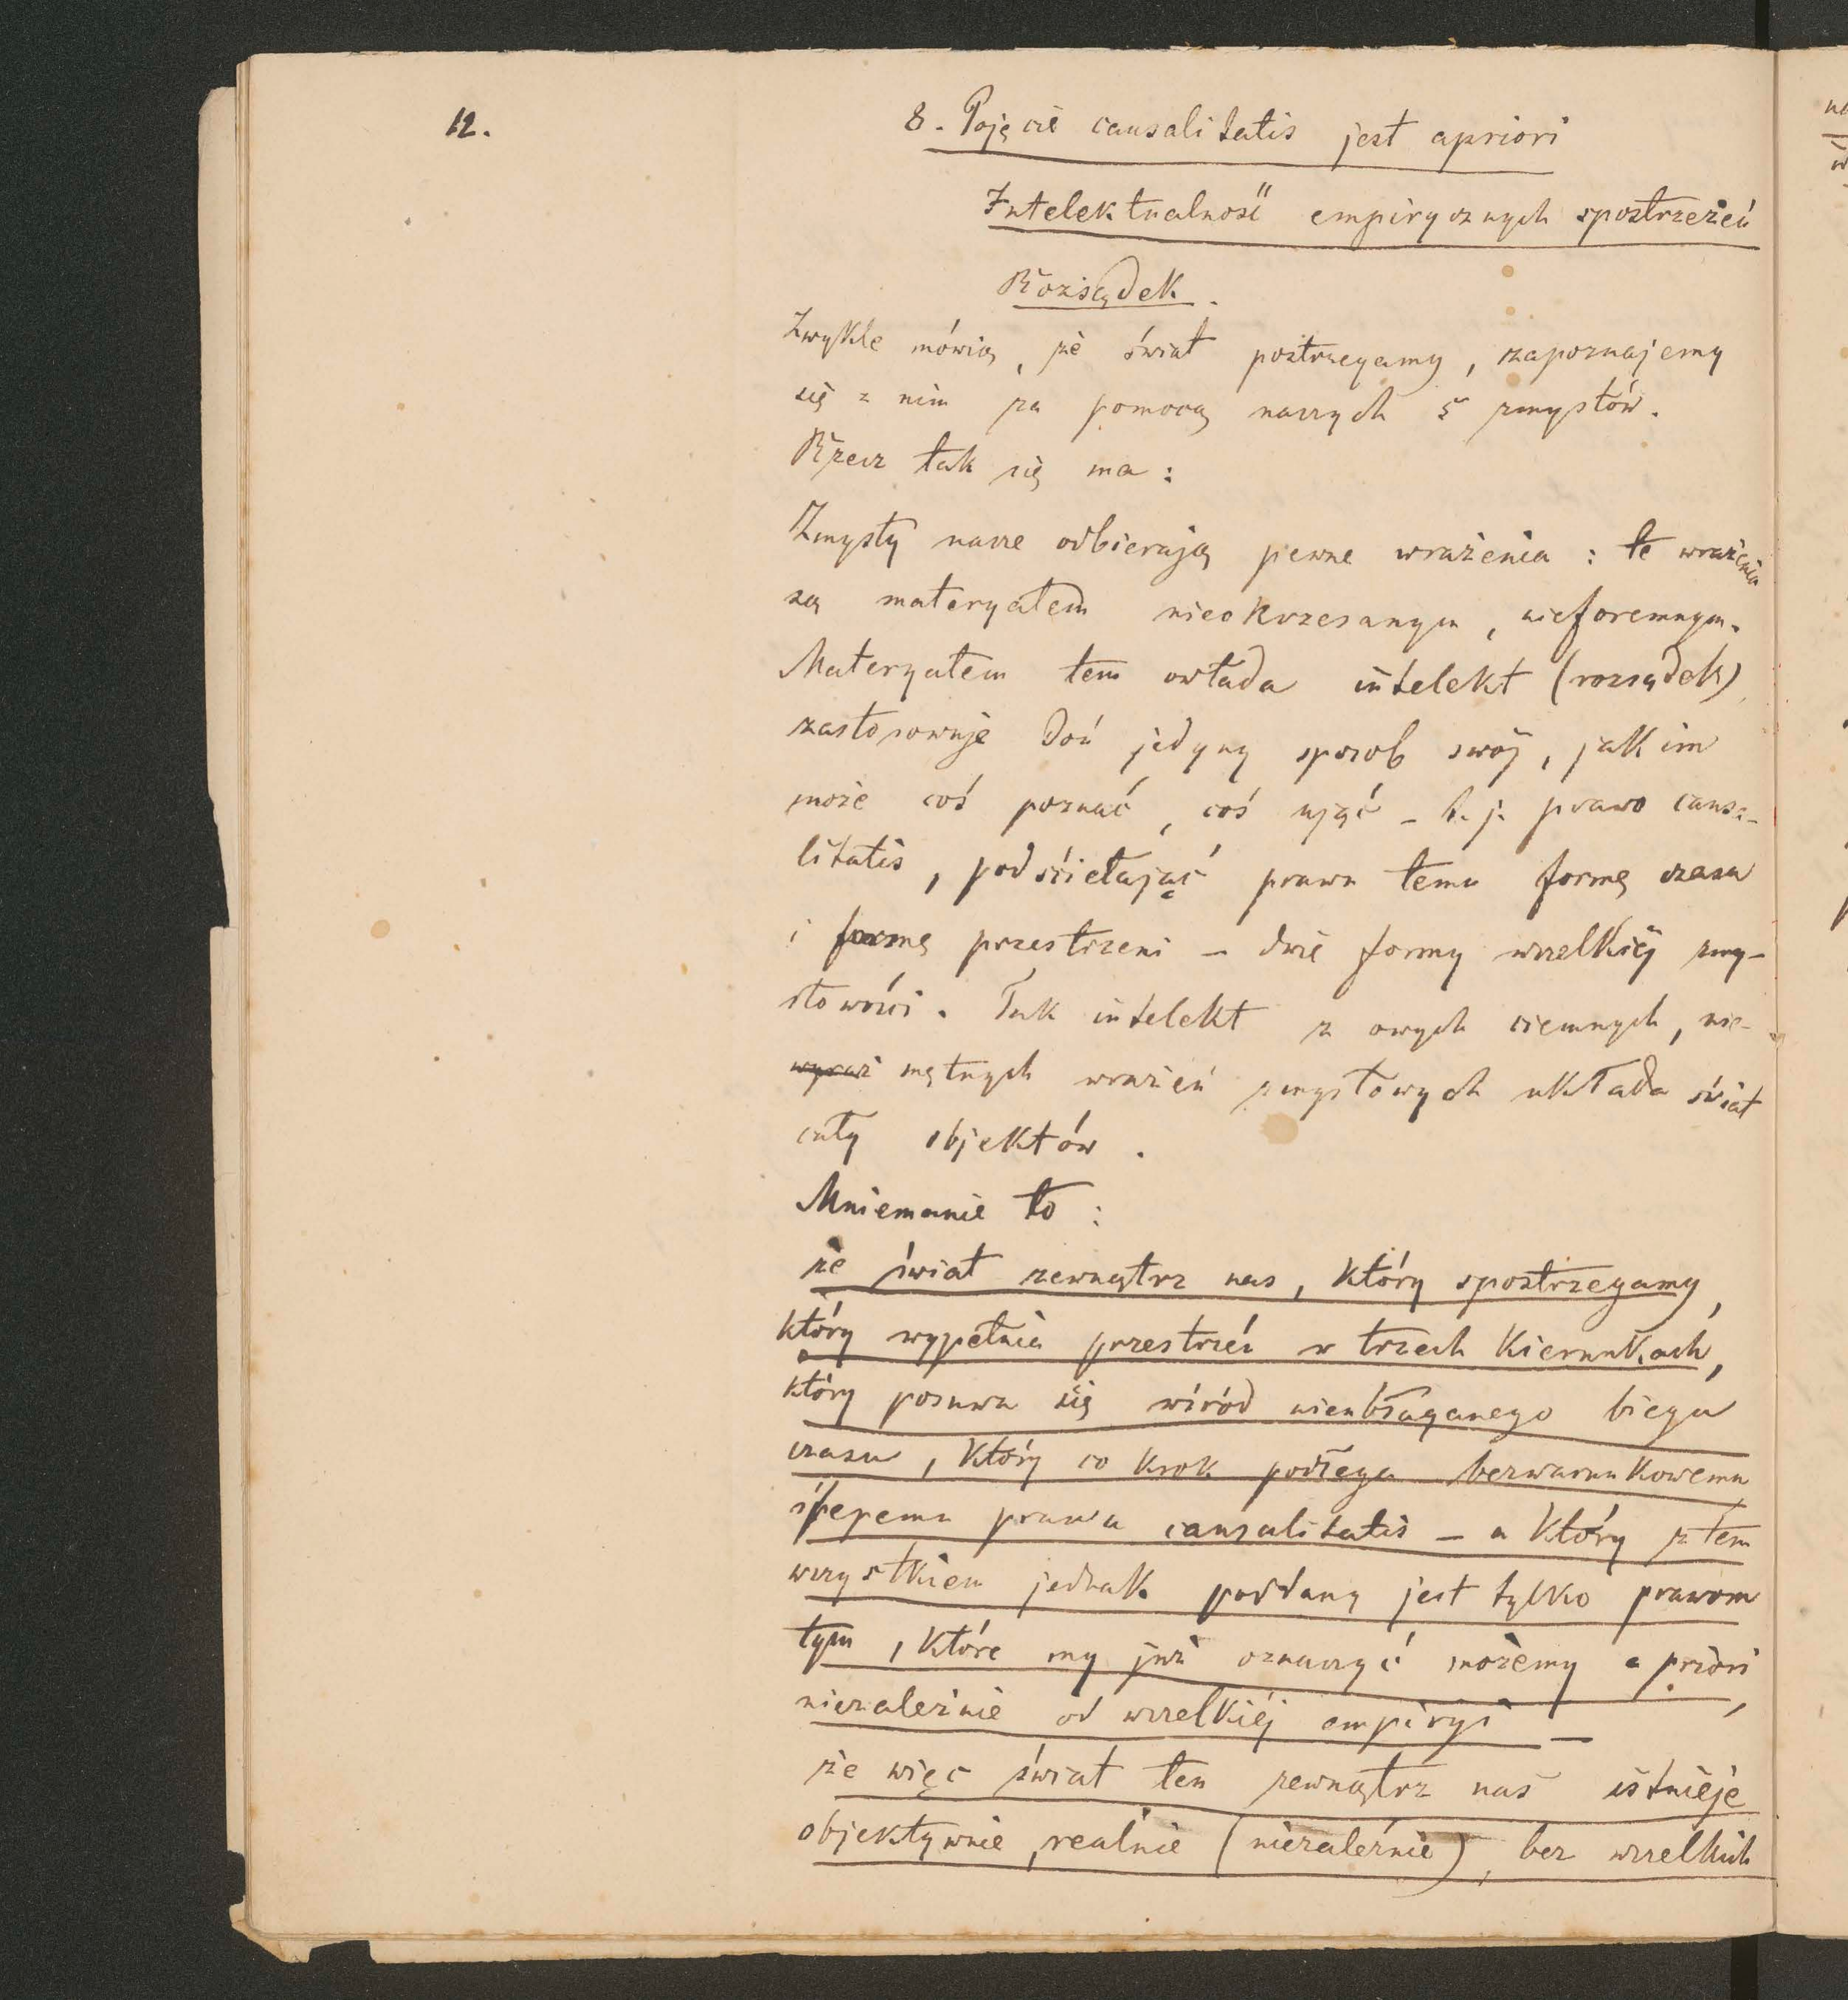 12.
8. Pojęcie causalitatis jest apriori
Intelektualność empirycznych spostrzeżeń
Rozsądek.
Zwykle mówią, że świat postrzegamy, zapoznajemy
się z nim za pomocą naszych 5 zmysłów.
Rzecz tak się ma:
Zmysły nasze odbierają pewne wrażenia: te wrażenia
są materyałem nieokrzesanym, nieforemnym.
Materyałem tem owłada intelekt (rozsądek)
zastosowuje doń jedyny sposob swój, jakim
może coś poznać, coś ująć - t. j. prawo causa-
litatis, podściełając prawu temu formę czasu
i formę przestrzeni - dwie formy wszelkiej zmy-
słowości. Tak intelekt z owych ciemnych, nie-
wyraź mętnych wrażeń zmysłowych układa świat
cały objektów.
Mniemanie to:
że świat zewnątrz nas, który spostrzegamy,
który wypełnia przestrzeń w trzech kierunkach,
który posuwa się wśród nieubłaganego biegu
czasu, który co krok podlega bezwarunkowemu
ślepemu prawu causalitatis - a który z tem
wszystkiem jednak poddany jest tylko prawom
tym, które my już oznaczyć możemy a priori,
niezależnie od wszelkiéj empiryi -
że więc świat ten zewnątrz nas istnieje
objektywnie, realnie (niezależnie), bez wszelkich